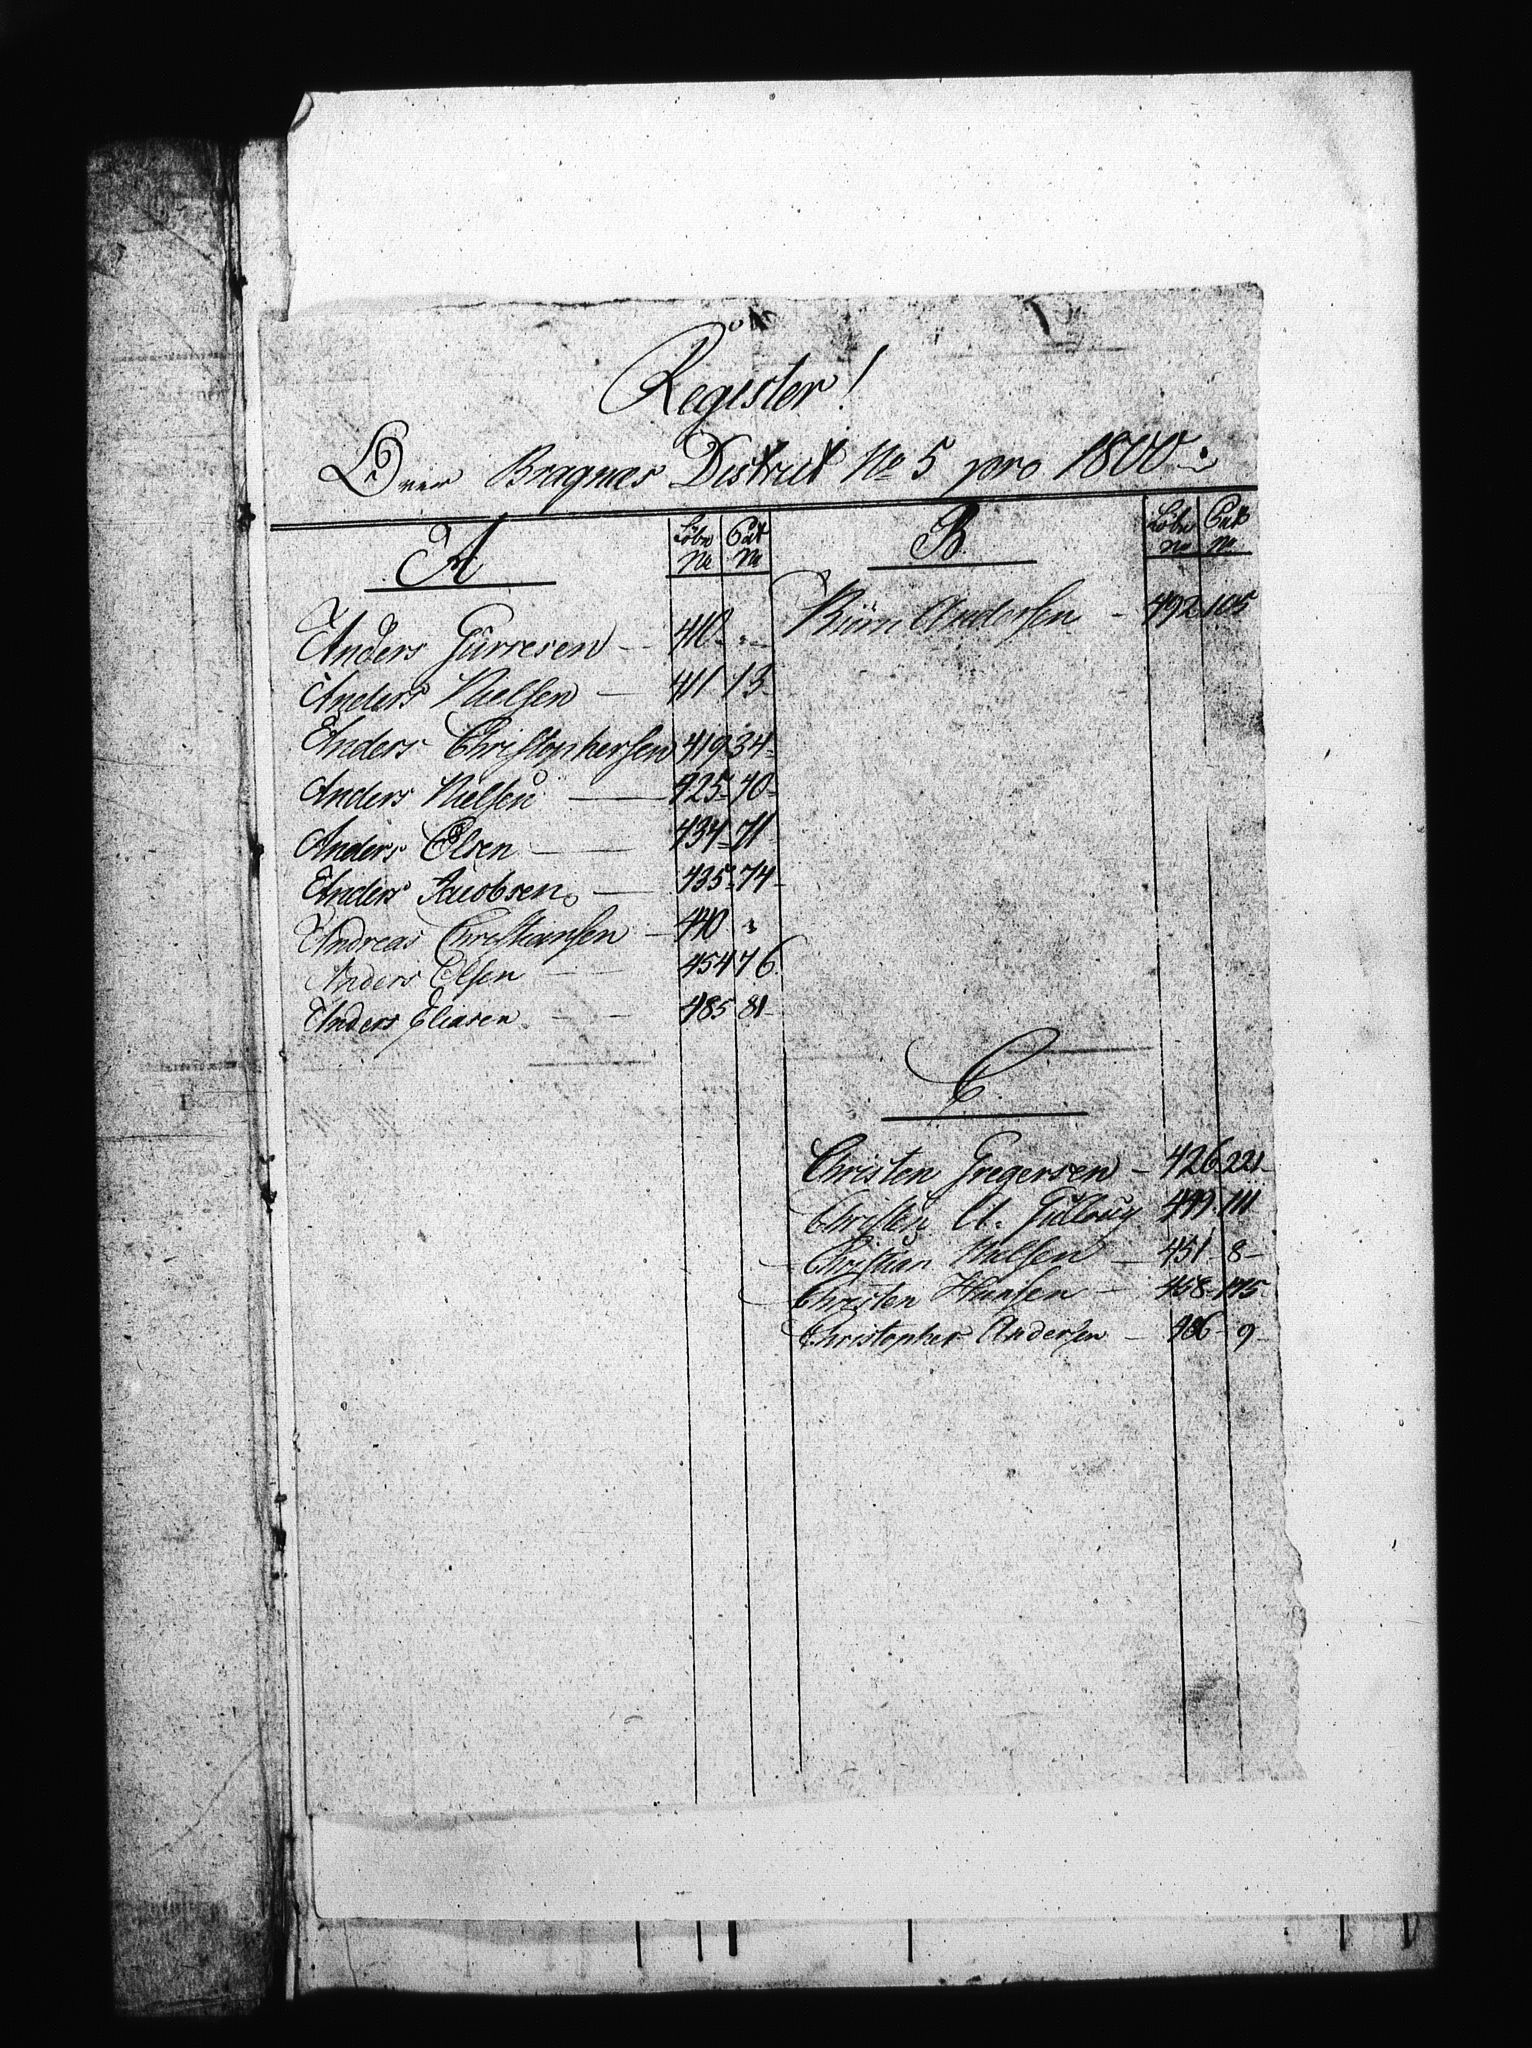 Register!
Over Bragnes District No 5 pro 1800
A
Löbe No
Pat No
Anders Gurresen - 410 "
Anders Nielsen - 411 13
Anders Christophersen 419 34
Anders Nielsen - 425 40
Anders Olsen - 434 71
Anders Jacobsen - 435 74
Andreas Christiansen - 440 "
Anders Olsen - 454 76
Anders Eliasen - 485 81
B
Löbe No
Pat No
Andersen - 492 105
C
Christen Gregersen - 426 221
Christen A. 449 111
Christian Nielsen - 451 8
Christen Hansen - 458 175
Christopher Andersen - 486 9